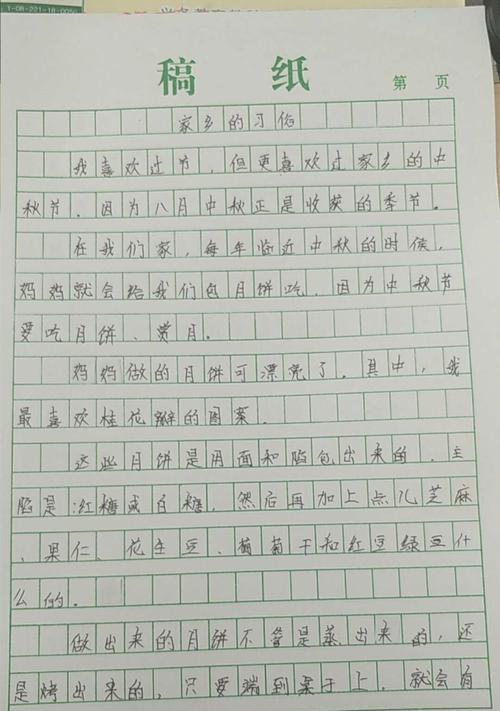 1-08-221-18-005
稿 纸
第 页
家乡的习俗
我喜欢过节，但更喜欢过家乡的中
秋节．因为八月中秋正是收获的季节。
在我们家，每年临近中秋的时候，
妈妈就会给我们包月饼吃．因为中秋节
要吃月饼、赏月。
妈妈做的月饼可漂亮了．其中，我
最喜欢桂花瓣的图案．
这些月饼是用面和陷包出来的．主
陷是:红糖或白糖．然后再加上点儿芝麻
、果仁、花生豆、葡萄干和红豆绿豆什
么的．
做出来的月饼不管是蒸出来的，还
是烤出来的，只要端到桌子上．就会有